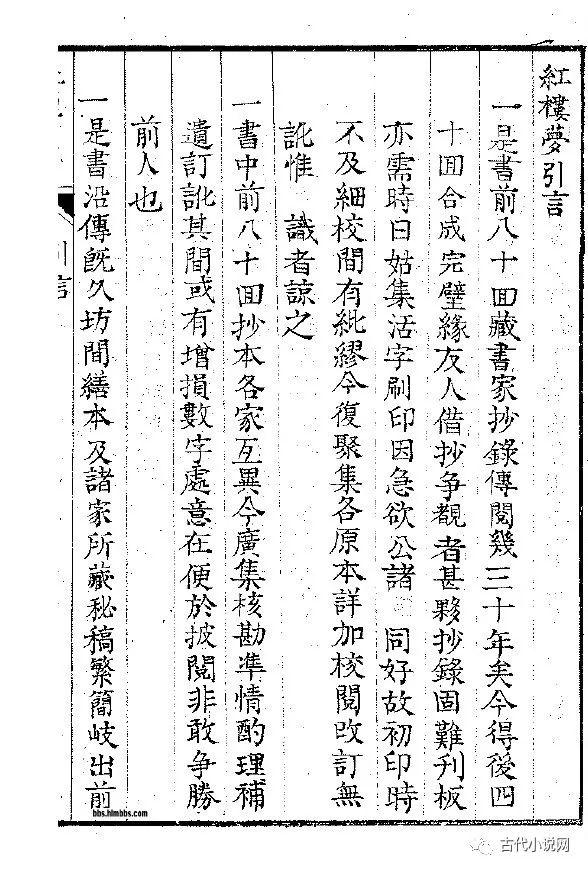 紅樓夢引言
一是書前八十囬藏書家抄錄傳閱幾三十年矣今得後四
十囬合成完璧緣友人借抄争覩者甚夥抄錄固難刋板
亦需時日姑集活字刷印因急欲公諸 同好故初印時
不及細校間有紕繆今復聚集各原本詳加校閱改訂無
訛惟 識者諒之
一書中前八十囬抄本各家互異今廣集核勘凖情酌理補
遺訂訛其間或有增損數字處意在便於披閱非敢争勝
前人也
一是書沿傳旣久坊間繕本及諸家所藏秘稿繁簡岐出前
引言
bbs.hlmbbs.com
古代小说网